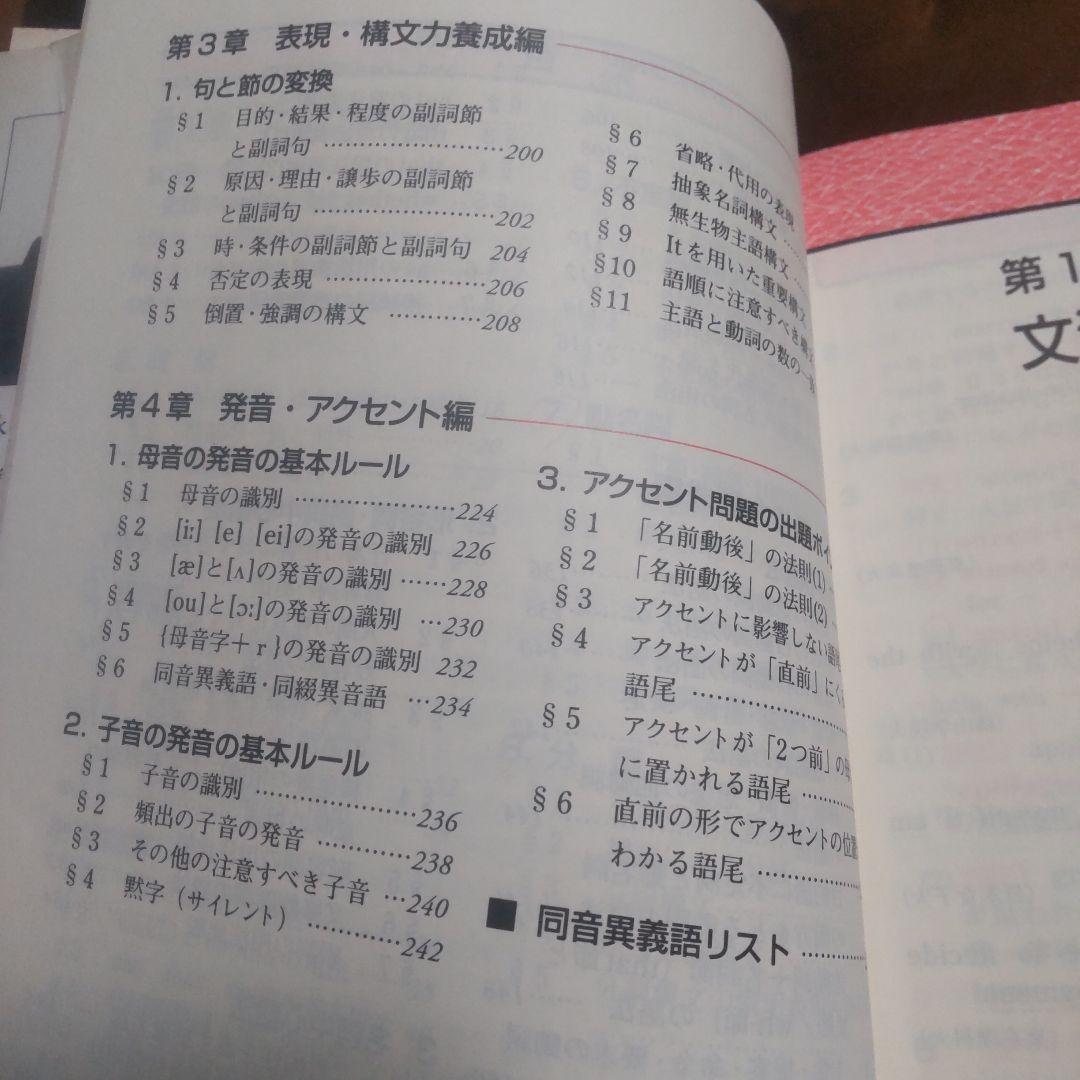 第3章 表現・構文力養成編
1. 句と節の変換
§1 目的・結果・程度の副詞節
と副詞句 ……………………200
§2 原因・理由・譲歩の副詞節
と副詞句 ……………………202
§3 時・条件の副詞節と副詞句 204
§4 否定の表現 …………………206
§5 倒置・強調の構文 …………208
§6 省略・代用の表現
§7 抽象名詞構文 ……
§8 無生物主語構文 …
§9 Itを用いた重要構文
§10 語順に注意すべき構文
§11 主語と動詞の数の一致
第4章 発音・アクセント編
1. 母音の発音の基本ルール
§1 母音の識別 …………………224
§2 [iː] [e] [ei]の発音の識別 226
§3 [æ]と[ʌ]の発音の識別 ……228
§4 [ou]と[ɔː]の発音の識別 …230
§5 {母音字＋r}の発音の識別 232
§6 同音異義語・同綴異音語 …234
2. 子音の発音の基本ルール
§1 子音の識別 …………………236
§2 頻出の子音の発音 …………238
§3 その他の注意すべき子音 …240
§4 黙字（サイレント）…………242
3. アクセント問題の出題ポイ
§1 「名前動後」の法則(1) …
§2 「名前動後」の法則(2) …
§3 アクセントに影響しない語尾
§4 アクセントが「直前」にく
語尾 …………………
§5 アクセントが「2つ前」の
に置かれる語尾 ………
§6 直前の形でアクセントの位置
わかる語尾 ……………
■ 同音異義語リスト ………
第1
文
the
to decide